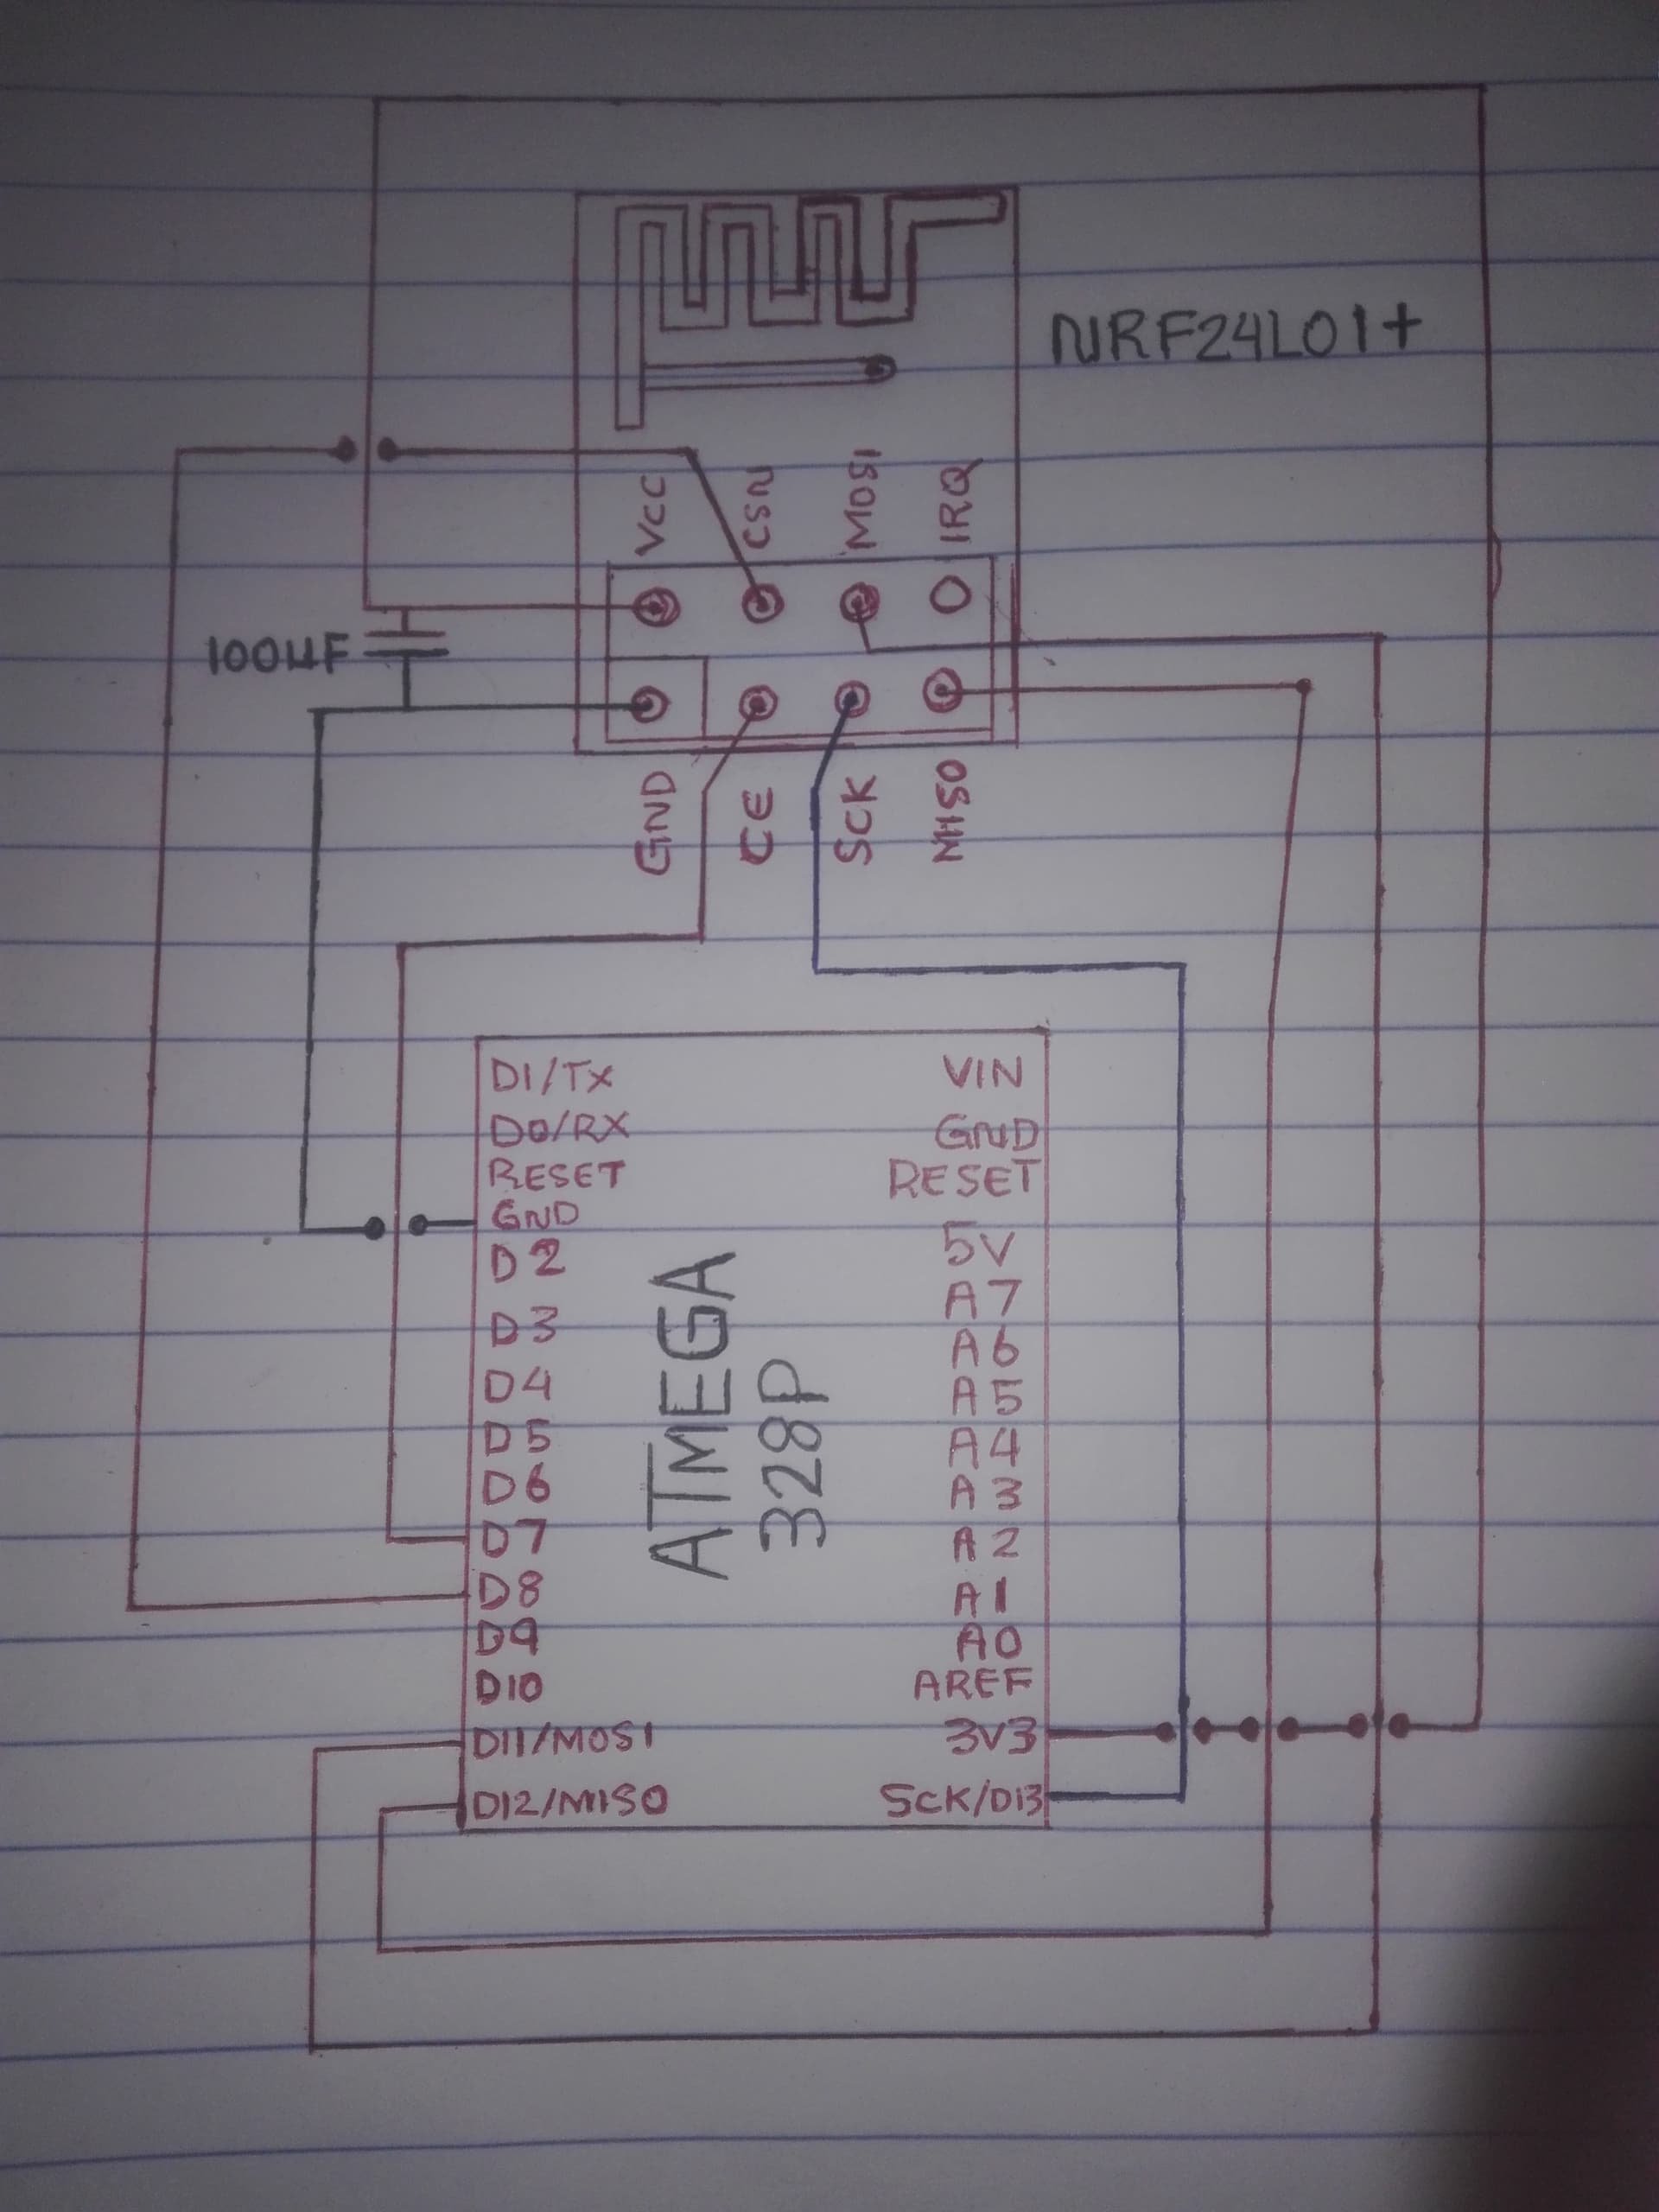 NRF24L01+
VCC
CSN
MOSI
IRQ
100µF
GND
CE
SCK
MISO
D1/TX
VIN
D0/RX
GND
RESET
RESET
GND
5V
D2
A7
D3
A6
D4
A5
D5
A4
D6
A3
D7
A2
D8
A1
D9
A0
D10
AREF
D11/MOSI
3V3
D12/MISO
SCK/D13
ATMEGA
328P